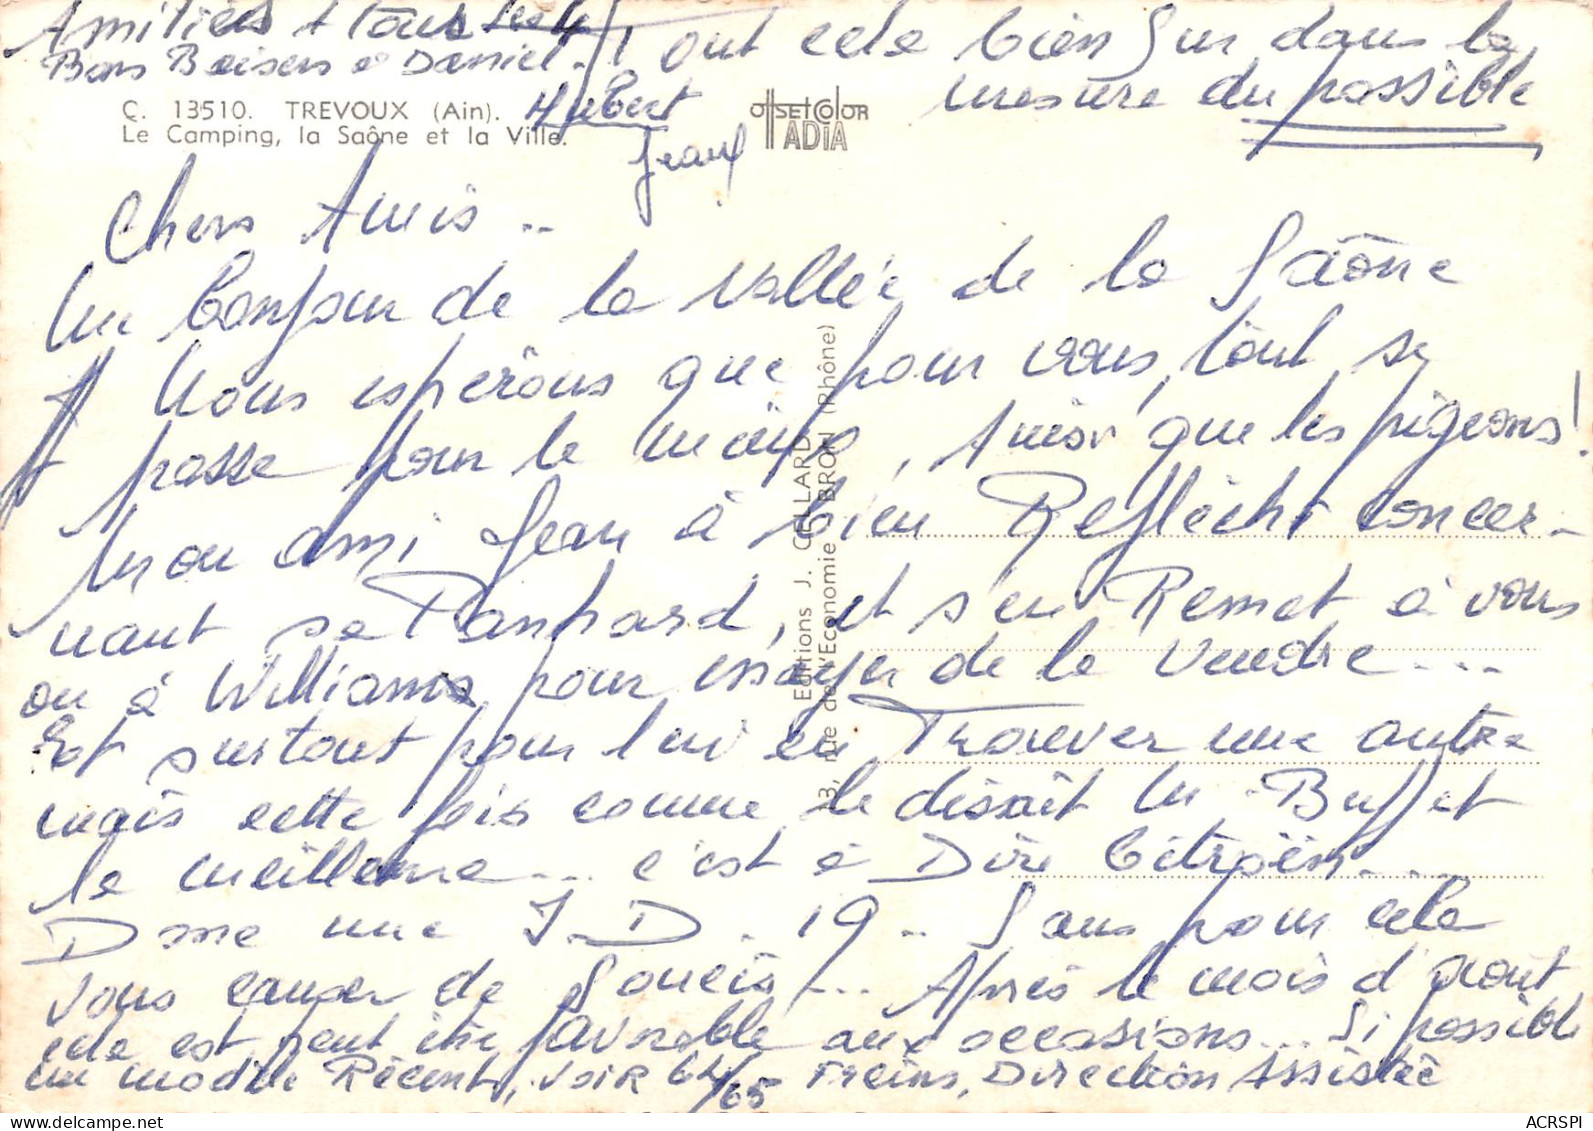 Amitiés à tous
Bons Baisers à Daniel.
Hubert
Jean
Tout cela bien sur dans la
mesure du possible
C. 13510. TREVOUX (Ain).
Le Camping, la Saône et la Ville.
OFFSET COLOR
ADIA
Chers Amis ..
Un bonjour de la vallée de la Saône
Nous espérons que pour vous, tout se
passe pour le mieux, Ainsi que les pigeons!
Mon ami Jean à bien Reflèchi concer-
nant sa Panhard, et s'en Remet à vous
ou à Williams pour essayer de la vendre ...
Et surtout pour lui en Trouver une autre
mais cette fois comme le disait Mr Buffet
la meilleure ... c'est à Dire Citroën ....
Donc une I.D. 19 .. Sans pour cela
vous causer de Soucis!... Après le mois d'Aout
cela est peut être favorable aux occasions... Si possible
un modèle Récent, voir 64/65 Freins, Direction Assistée
Editions J. CELLARD
13, rue de l'Economie BRON (Rhône)
ACRSPI